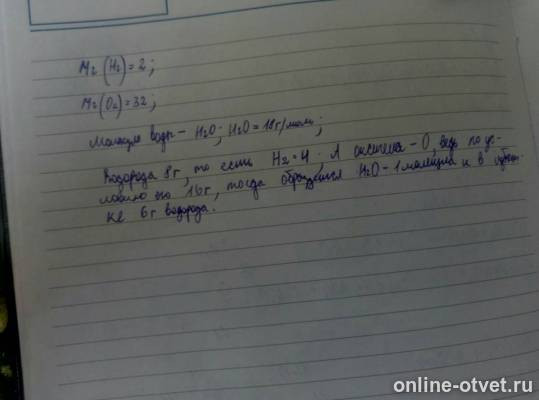 Mr (H₂) = 2 ;
Mr (O₂) = 32 ;
Молекула воды - H₂O ; H₂O = 18 г/моль ;
Водорода 8 г, то есть H₂ = 4 ; А - O, ведь по ус-
ловию его 16 г, тогда H₂O - 1 молекула и в
ке 6 г водорода.
online-otvet.ru